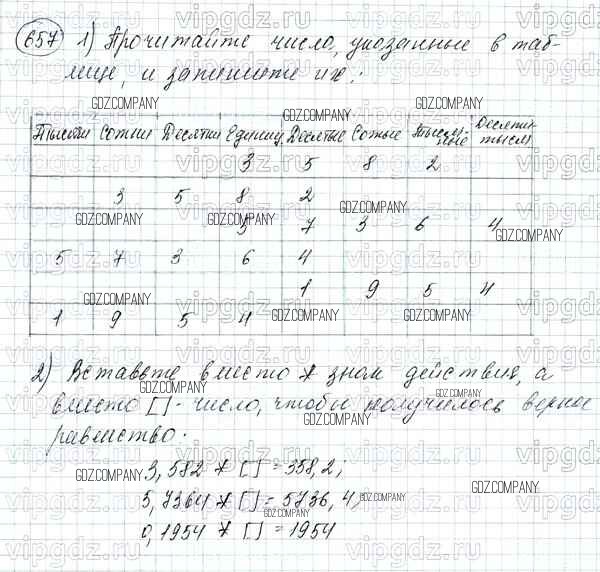 657 1) Прочитайте число, указанные в таб-
лице, и запишите их:
Тысячи Сотни Десятки Единицы Десятые Сотые Тысячные Десятитысячн
3 5 8 2
3 5 8 2
5 7 3 6 4
5 7 3 6 4
1 9 5 4
1 9 5 4
2) Вставьте вместо * знак действия, а
вместо [] - число, чтобы получилось верное
равенство:
3,582 * [] = 358,2;
5,7364 * [] = 5736,4;
0,1954 * [] = 1954